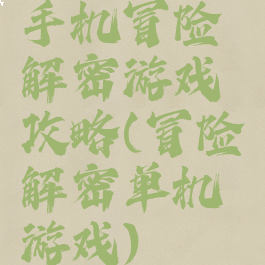 手机冒险
解密游戏
攻略(冒险
解密单机
游戏)